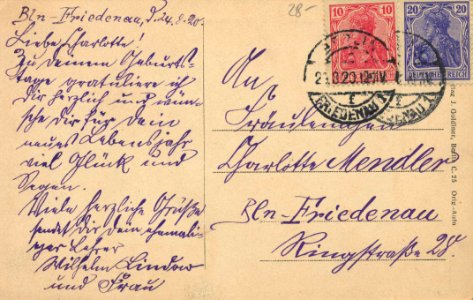 Bln-Friedenau, d. 24.8.20.
Liebe Charlotte!
Zu Deinem Geburts-
tage gratuliere ich
Dir herzlich und wün-
sche Dir für Dein
neues Lebensjahr
viel Glück und
Segen.
Viele herzliche Grüße
sendet Dir Dein ehemali-
ger Lehrer
Wilhelm Lindow
und Frau
28-
10
10
20
20
DEUTSCHES REICH
FRIEDENAU 1
An
Fräulein
Charlotte Mendler
Bln-Friedenau
Ringstraße 24.
J. Goldiner, Berlin C. 25